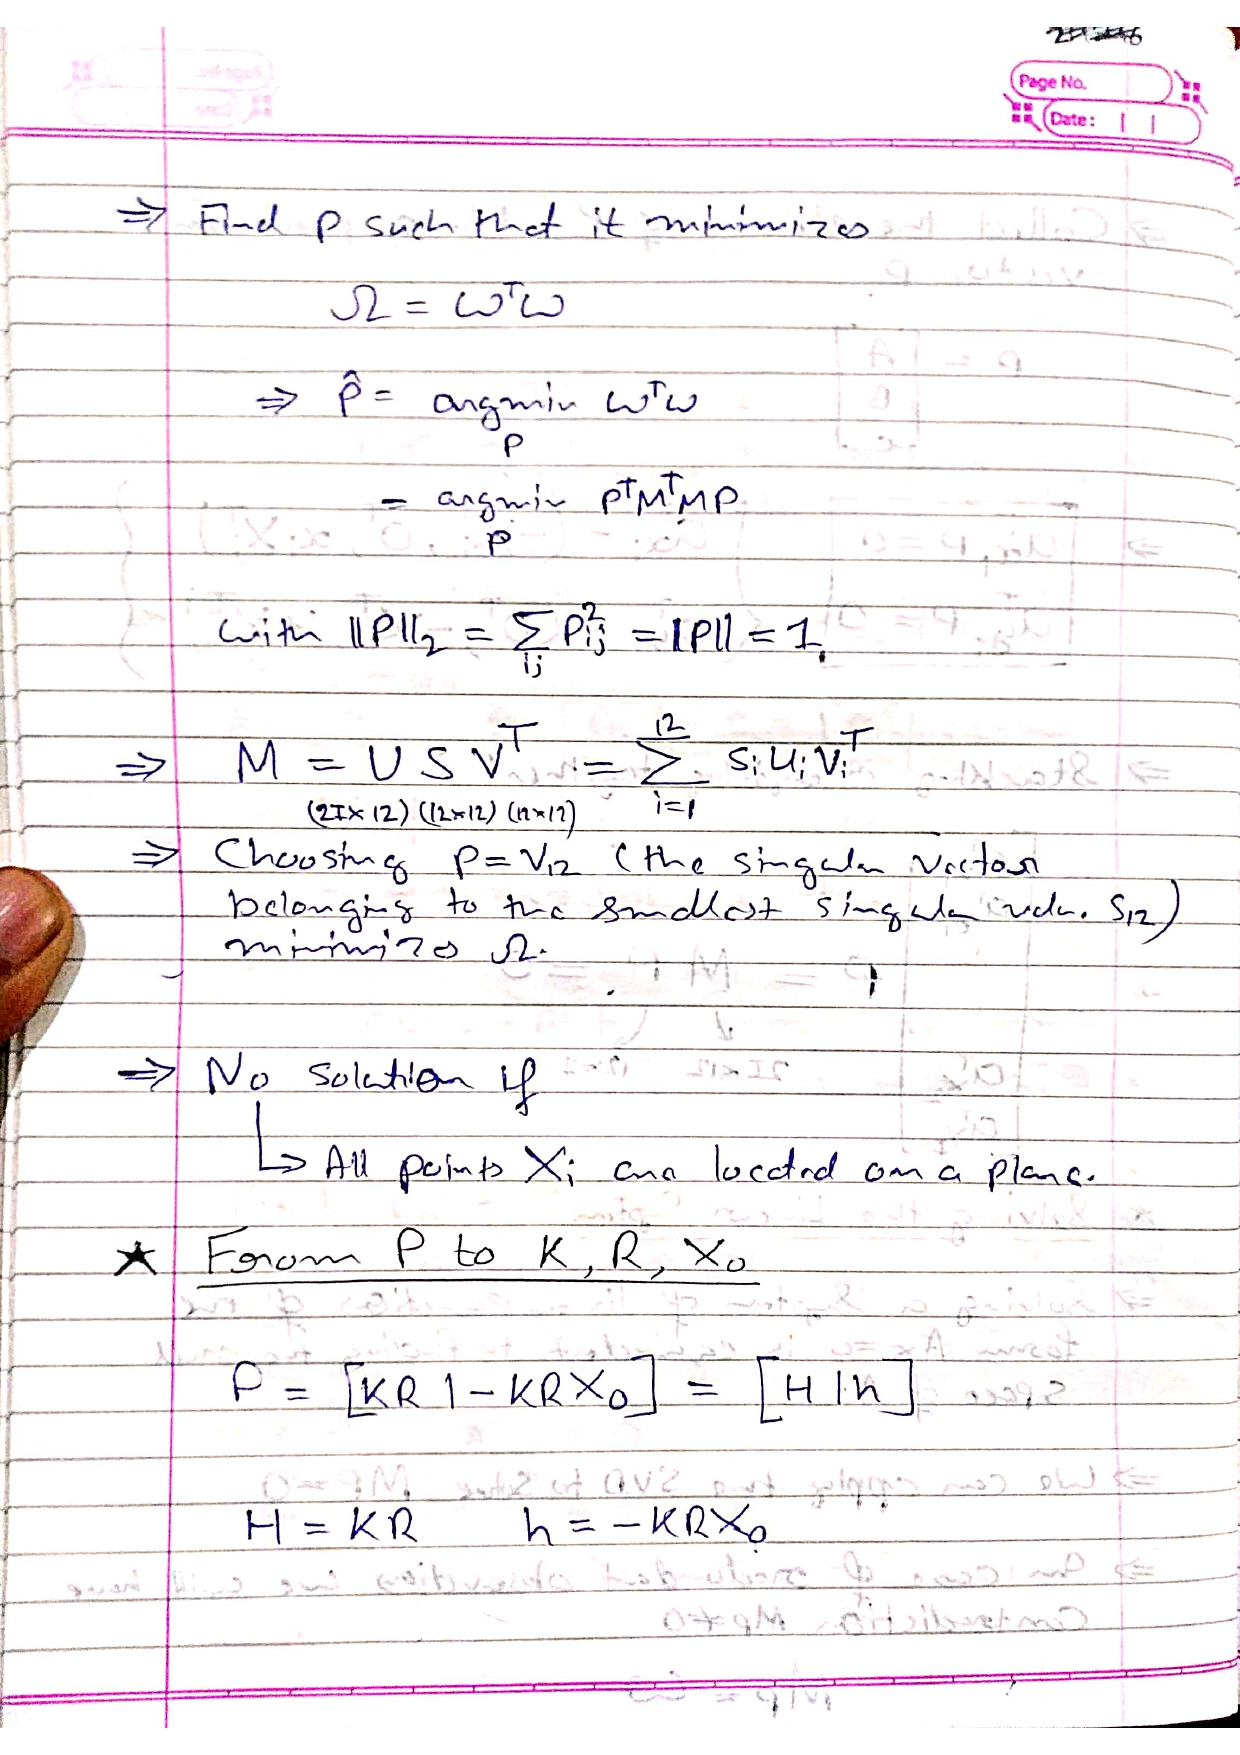 Page No.
Date: | |
⇒ Find p such that it minimizes
Ω = ω^Tω
⇒ p̂ = argmin ω^Tω
p
= argmin p^T M^T M p
p
with ||P||_2 = Σ_ij p_ij^2 = ||p|| = 1
⇒ M = U S V^T = Σ_{i=1}^{12} s_i u_i v_i^T
(2I×12) (12×12) (12×12)
⇒ Choosing p = v_12 (the singular vector
belonging to the smallest singular value s_12)
minimizes Ω.
⇒ No solution if
↳ All points X_i are located on a plane.
★ From P to K, R, X_0
P = [KR | -KRX_0] = [H | h]
H = KR h = -KRX_0